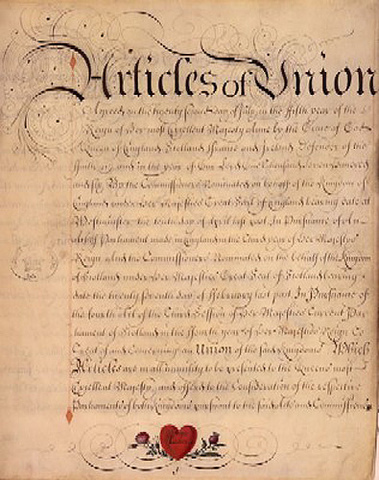 Articles of Union
Agreed on the twenty second day of July in the fifth year of the
Reign of Her most Excellent Majesty Anne by the Grace of God
Queen of England Scotland France and Ireland Defender of the
Faith &c and in the year of Our Lord One thousand Seven hundred
and Six By the Commissioners Nominated on behalf of the Kingdom of
England under Her Majesties Great Seal of England bearing date at
Westminster the tenth day of April last past In Pursuance of an
Act of Parliament made in England in the third year of Her Majesties
Reign and the Commissioners Nominated on the behalf of the Kingdom
of Scotland under Her Majesties Great Seal of Scotland bearing
date the twenty seventh day of February last past In Pursuance of
the fourth Act of the third Session of Her Majesties Current Par
liament of Scotland in the fourth year of Her Majesties Reign to
Treat of and Concerning an Union of the said Kingdoms Which
Articles are in all humility to be presented to the Queens most
Excellent Majesty and offered to the Consideration of the respective
Parliaments of both Kingdoms pursuant to the said Acts and Commissions